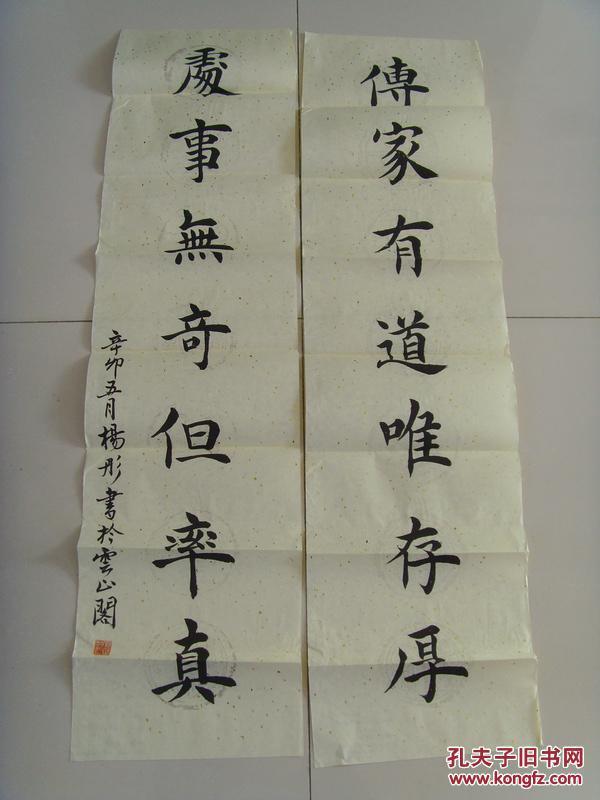 傳家有道唯存厚
處事無奇但率真
辛卯五月楊彤書於雲山閣
孔夫子旧书网
www.kongfz.com